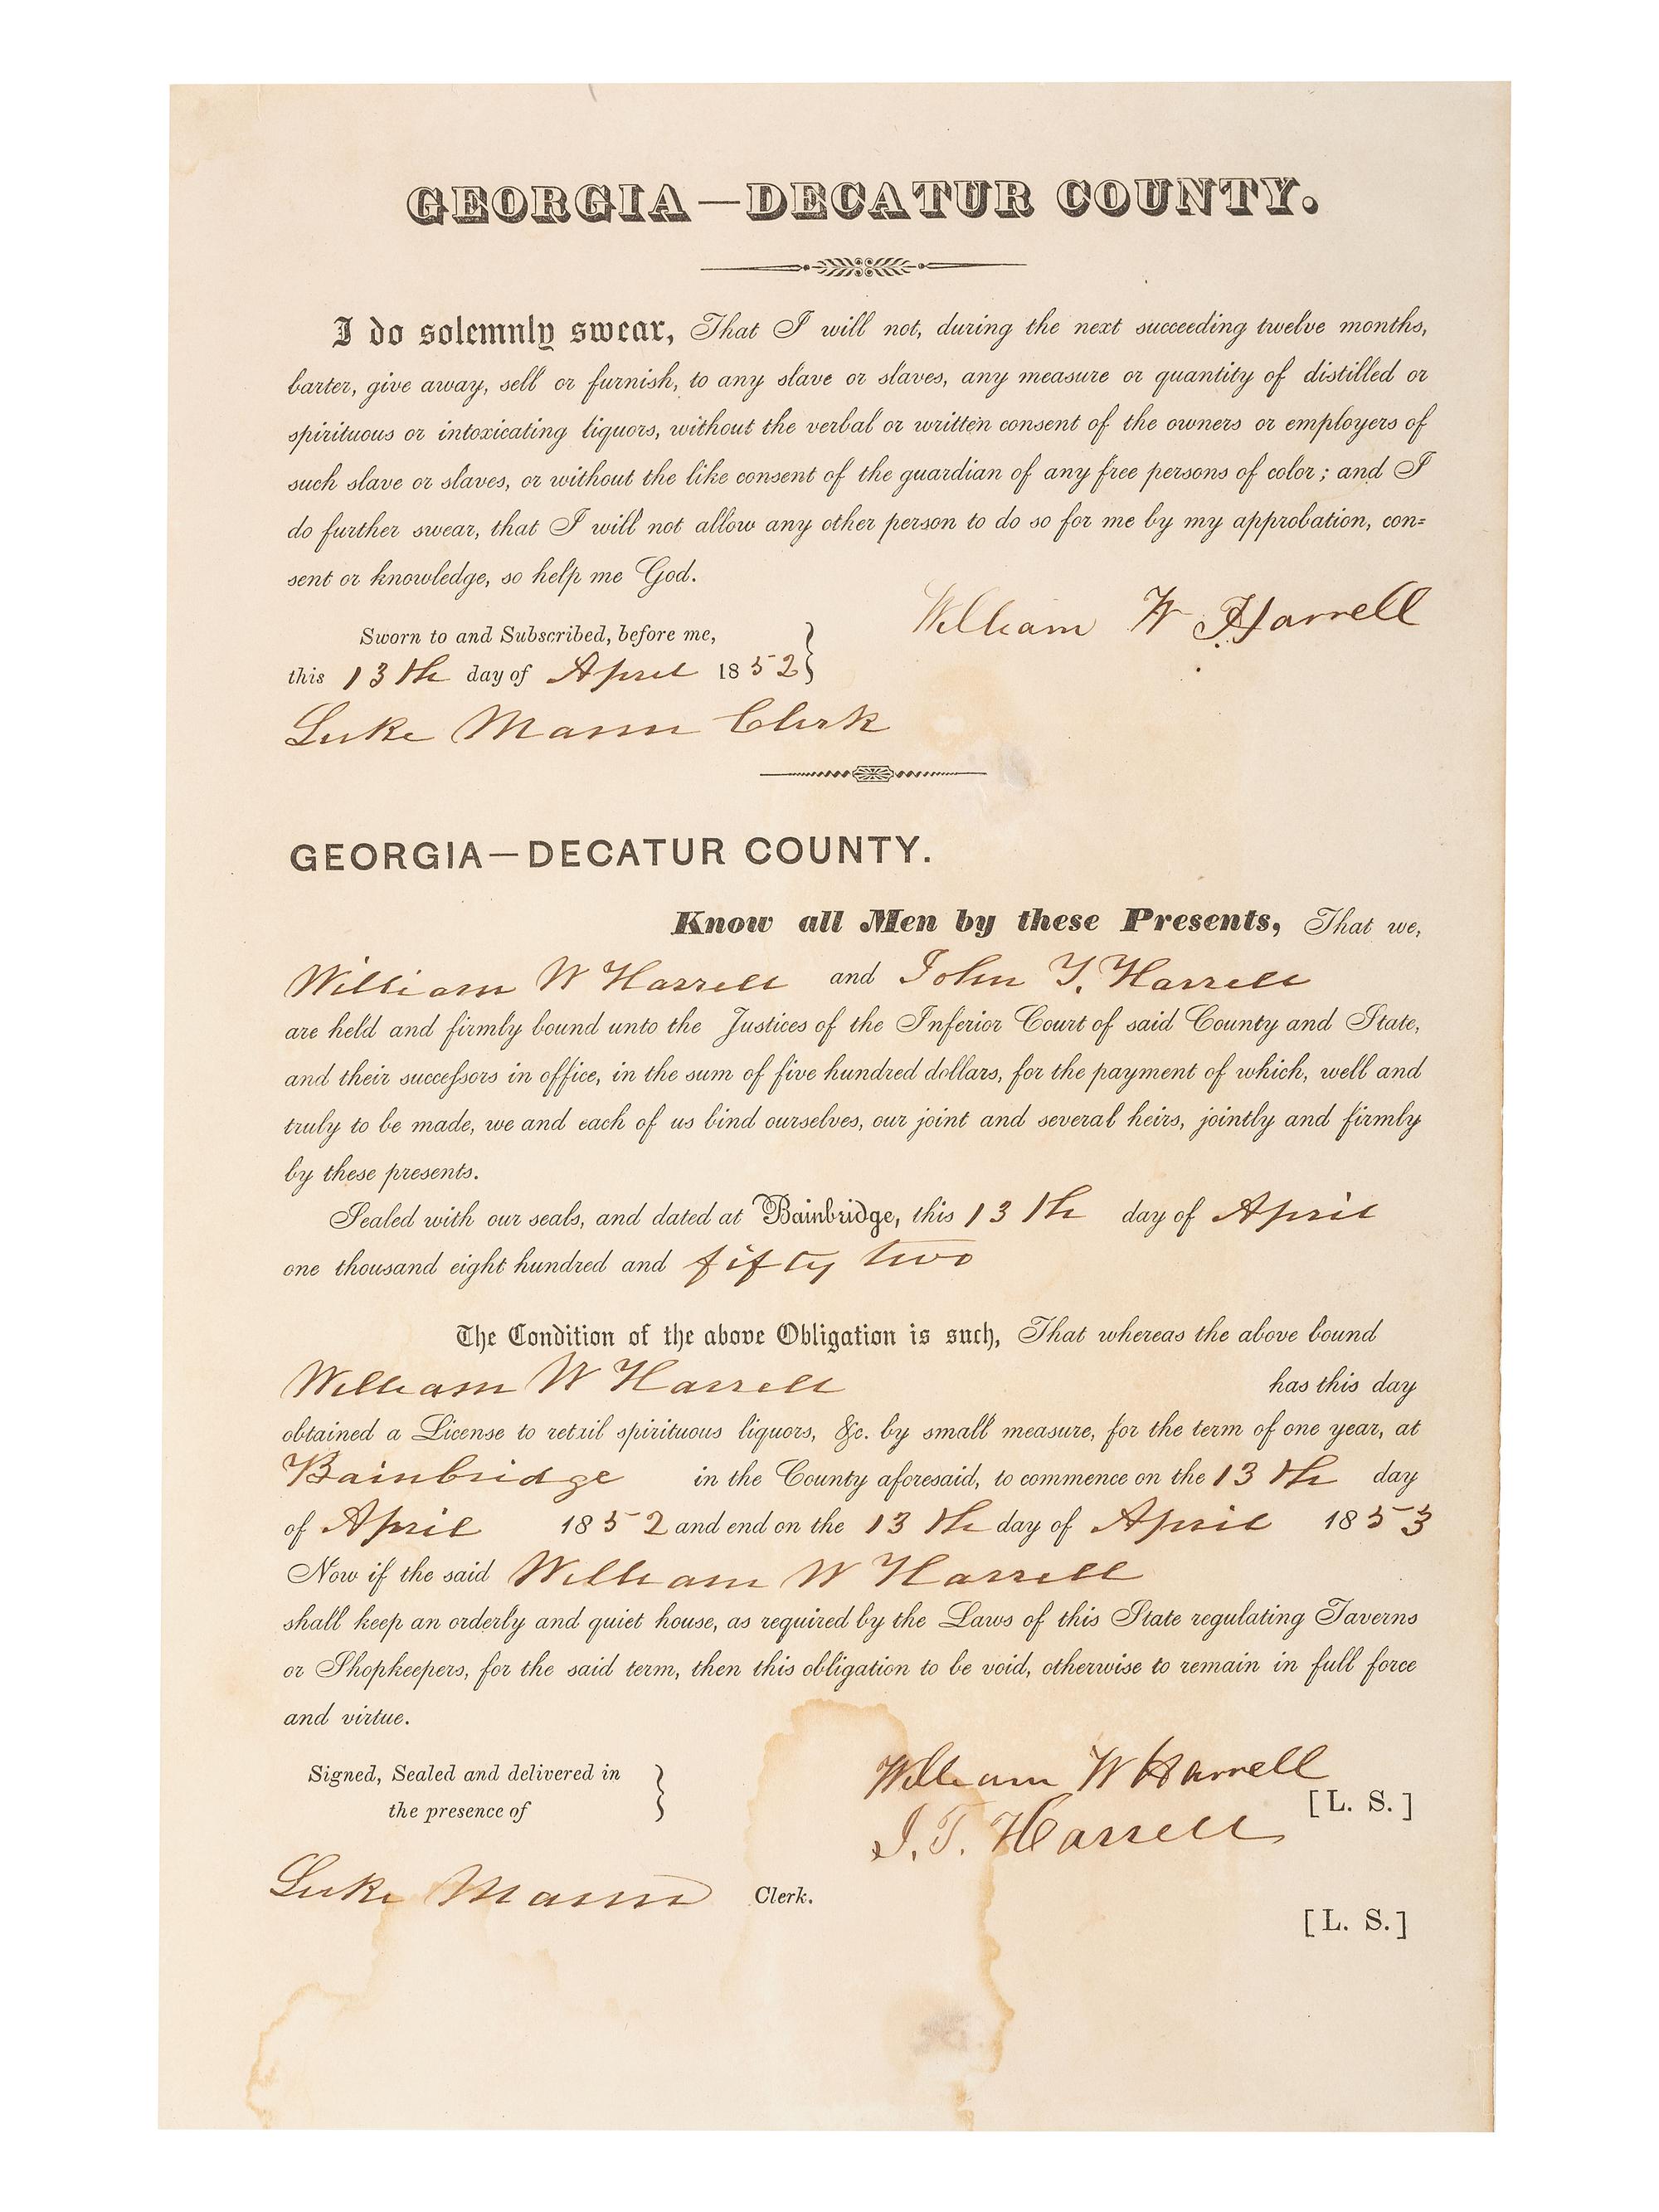 GEORGIA—DECATUR COUNTY.
I do solemnly swear, That I will not, during the next succeeding twelve months,
barter, give away, sell or furnish, to any slave or slaves, any measure or quantity of distilled or
spirituous or intoxicating liquors, without the verbal or written consent of the owners or employers of
such slave or slaves, or without the like consent of the guardian of any free persons of color; and I
do further swear, that I will not allow any other person to do so for me by my approbation, con=
sent or knowledge, so help me God.
William W Harrell
Sworn to and Subscribed, before me,
this 13th day of April 1852
Luke Mann Clerk
GEORGIA—DECATUR COUNTY.
Know all Men by these Presents, That we,
William W Harrell and John T. Harrell
are held and firmly bound unto the Justices of the Inferior Court of said County and State,
and their successors in office, in the sum of five hundred dollars, for the payment of which, well and
truly to be made, we and each of us bind ourselves, our joint and several heirs, jointly and firmly
by these presents.
Sealed with our seals, and dated at Bainbridge, this 13th day of April
one thousand eight hundred and fifty two
The Condition of the above Obligation is such, That whereas the above bound
William W Harrell has this day
obtained a License to retail spirituous liquors, &c. by small measure, for the term of one year, at
Bainbridge in the County aforesaid, to commence on the 13th day
of April 1852 and end on the 13th day of April 1853
Now if the said William W Harrell
shall keep an orderly and quiet house, as required by the Laws of this State regulating Taverns
or Shopkeepers, for the said term, then this obligation to be void, otherwise to remain in full force
and virtue.
Signed, Sealed and delivered in
the presence of
William W Harrell [L. S.]
J. T. Harrell
Luke Mann Clerk.
[L. S.]